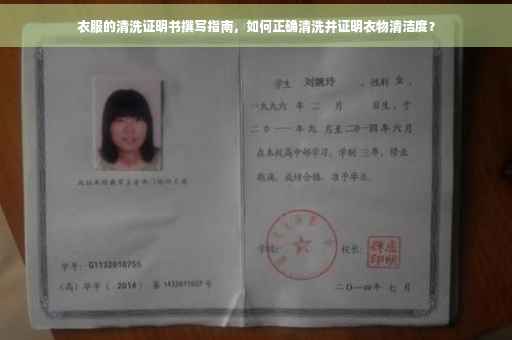 衣服的清洗证明书撰写指南，如何正确清洗并证明衣物清洁度？
学生 刘婉玲 ，性别 女 ，
一九九六 年 二 月 日生，于
二〇一一年九 月至二〇一四年六月
在本校高中部学习，学制 三年，修业
期满，成绩合格，准予毕业。
学校： 校长：
学号：G1132010755
（高）毕字（ 2014 ）第 1432011027 号
二〇一四年 七 月